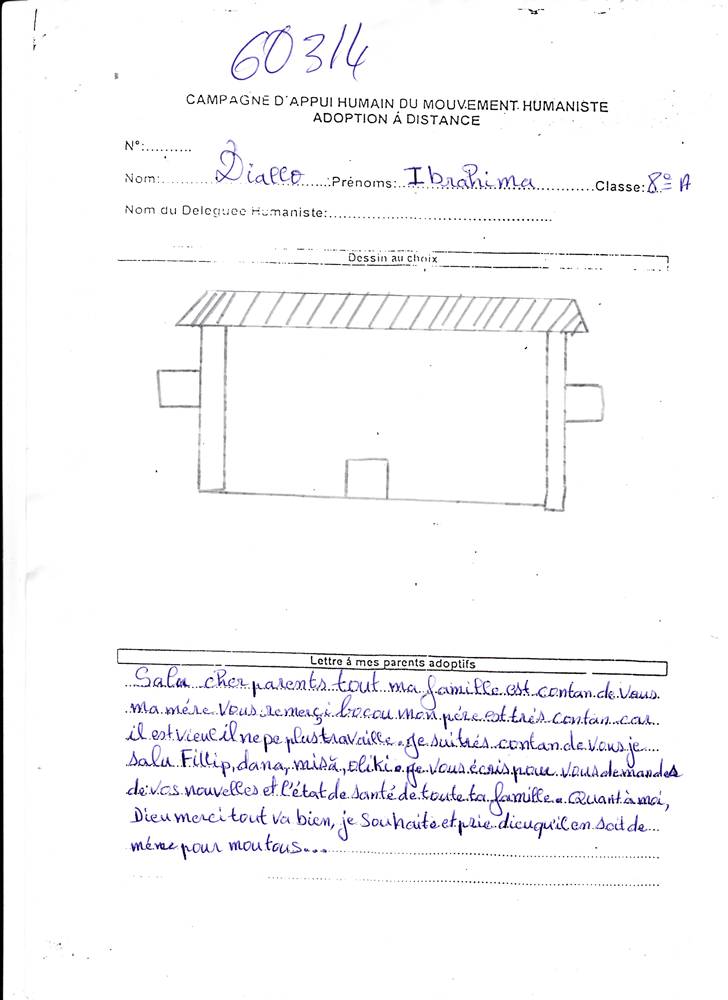 60314
CAMPAGNE D'APPUI HUMAIN DU MOUVEMENT HUMANISTE
ADOPTION Á DISTANCE
N°:..........
Nom:..........Diallo.....:Prénoms:..Ibrahima............Classe: 8e A
Nom du Deleguee Humaniste:..................................................
Dessin au choix
Lettre á mes parents adoptifs
Salu cher parents tout ma famille est contan de vous
ma mére vous remerçi bocou mon pére est trés contan car
il est vieul il ne pe plus travaille. je sui trés contan de vous je
salu Fillip, dana, misă, oliki. je vous écris pour vous demandes
de vos nouvelles et l'état de santé de toute ta famille. Quant à moi,
Dieu merci tout va bien, je souhaite et prie dieu qu'il en soit de
méme pour moutous...